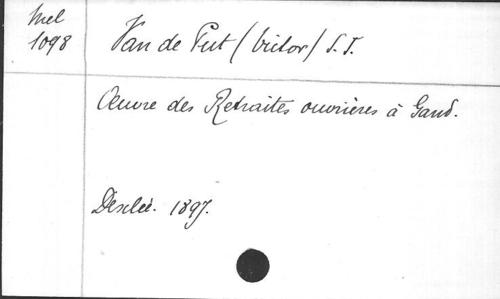 Mel
1098
Van de Put (Victor) S.J.
Œuvre des Retraites ouvrières à Gand.
Desclée. 1897.